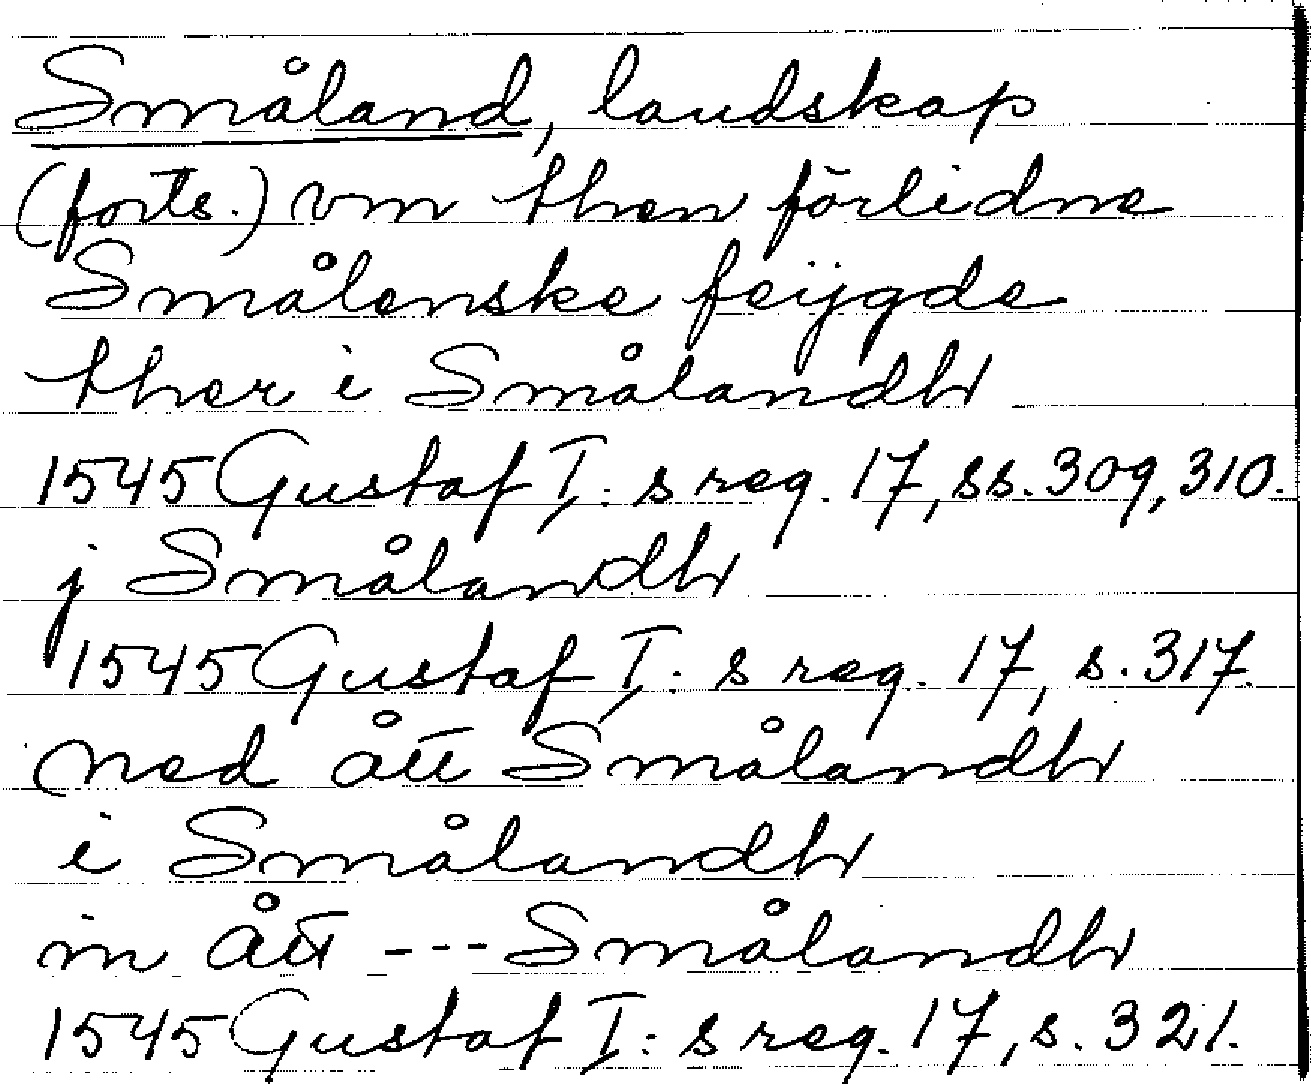 Småland, landskap
(forts.) vm then förlidne
Smålenske feijgde
ther i Smålandh
1545 Gustaf I:s reg. 17, ss. 309, 310.
j Smålandh
1545 Gustaf I:s reg. 17, s. 317.
ned ått Smålandh
i Smålandh
in ått --- Smålandh
1545 Gustaf I:s reg. 17, s. 321.